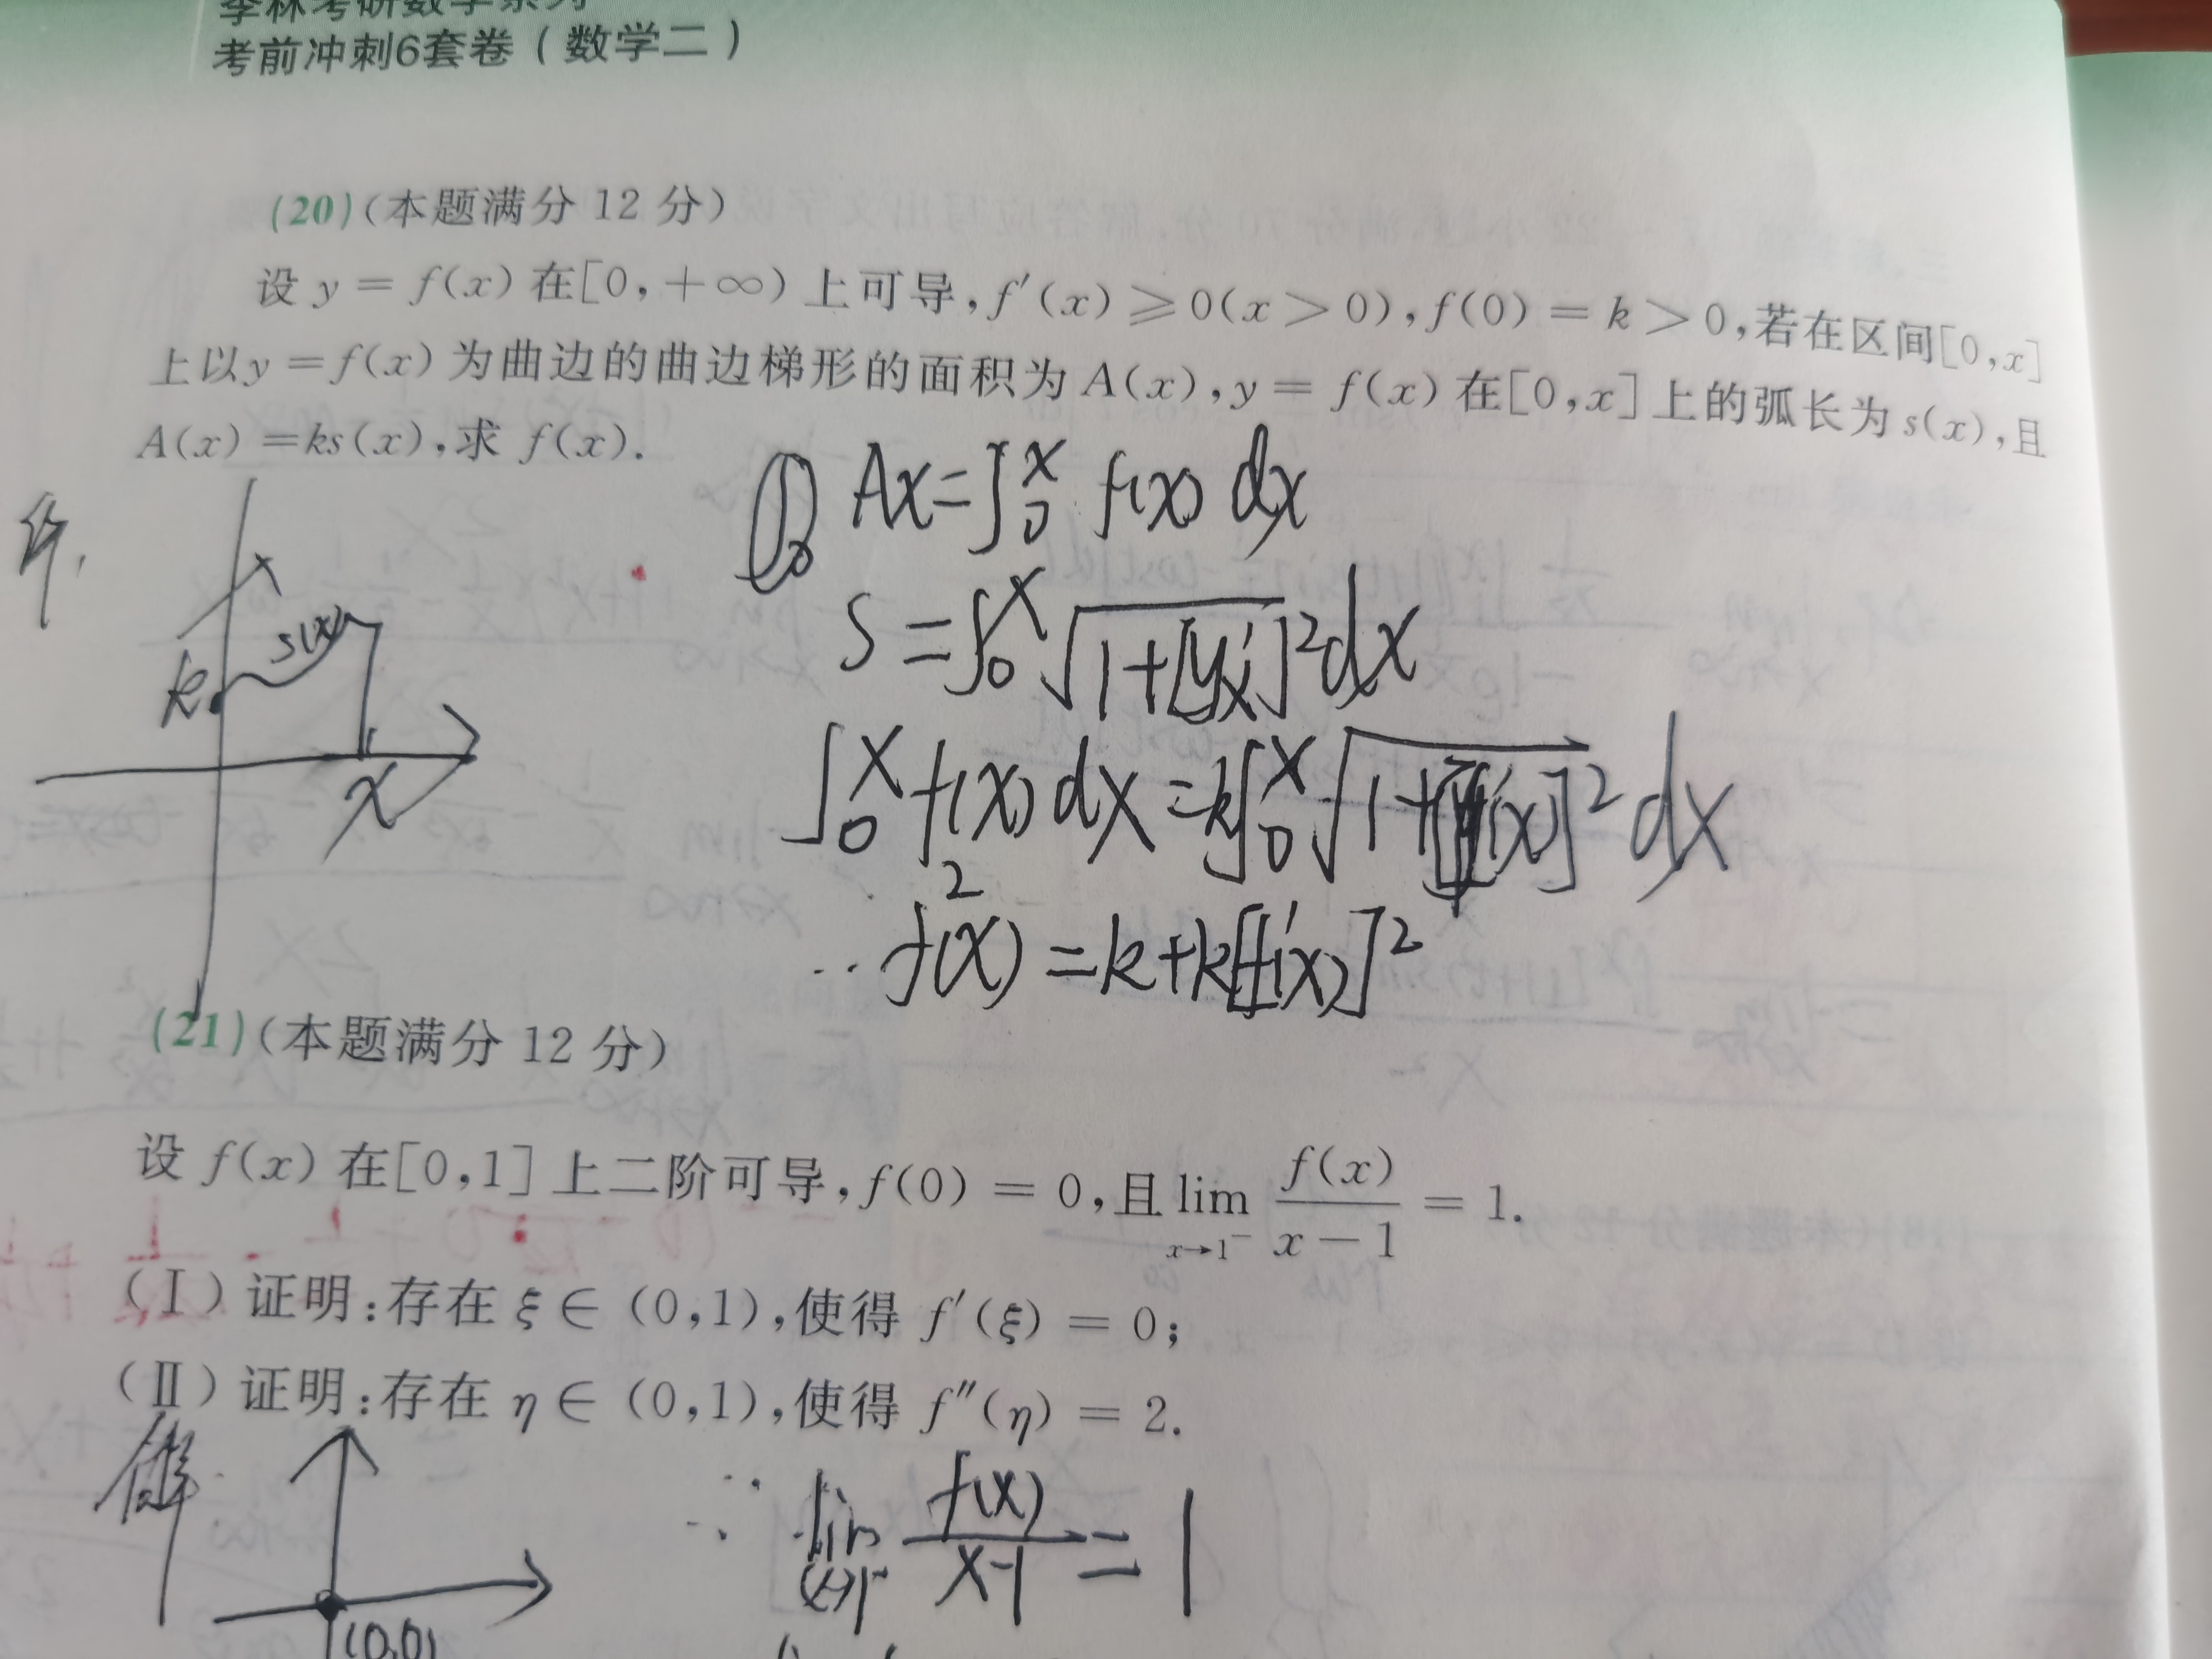 李林考研数学系列
考前冲刺6套卷（数学二）
(20)(本题满分 12 分)
设 y = f(x) 在[0,+∞) 上可导,f′(x) ⩾ 0(x > 0),f(0) = k > 0,若在区间[0,x]
上以 y = f(x) 为曲边的曲边梯形的面积为 A(x),y = f(x) 在[0,x] 上的弧长为 s(x),且
A(x) = ks(x),求 f(x).
Ax=∫₀ˣ f(x) dx
S(x)
k
x
S = ∫₀ˣ √1+[y'x]² dx
∫₀ˣ f(x) dx = k∫₀ˣ √1+[f'(x)]² dx
f²(x) = k+k[f'(x)]²
(21)(本题满分 12 分)
设 f(x) 在[0,1] 上二阶可导,f(0) = 0,且 lim_{x→1⁻} f(x)/(x−1) = 1.
(Ⅰ) 证明:存在 ξ ∈ (0,1),使得 f′(ξ) = 0;
(Ⅱ) 证明:存在 η ∈ (0,1),使得 f″(η) = 2.
解
∵ lim_{x→1⁻} f(x)/(x-1) = 1
(0,0)